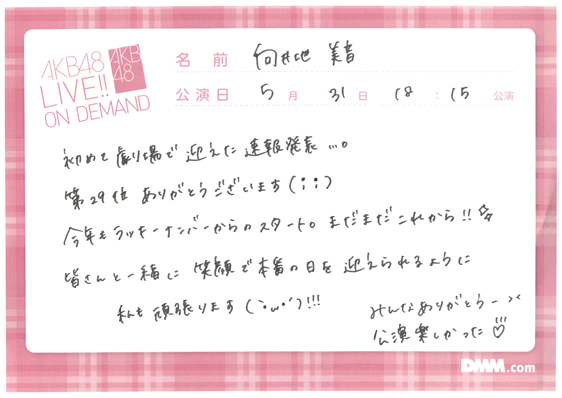 AKB48
LIVE!!
ON DEMAND
AKB
48
名 前 向井地 美音
公演日 5 月 31 日 18 : 15 公演
初めて劇場で迎えた速報発表...。
第29位 ありがとうございます(;;)
今年もラッキーナンバーからのスタート。まだまだこれから!!
皆さんと一緒に 笑顔で本番の日を 迎えられるように
私も 頑張ります(`・ω・´)!!!
みんなありがとうー××
公演楽しかった♡
DMM.com